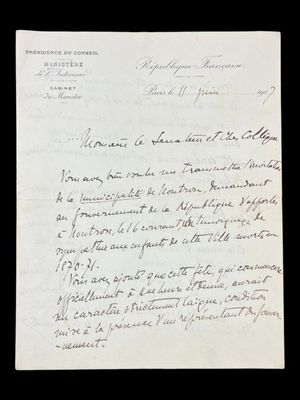 PRÉSIDENCE DU CONSEIL
MINISTÈRE
de l'Intérieur
CABINET
du Ministre
République Française
Paris, le 11 juin 1907
Monsieur le Sénateur et cher Collègue
Vous avez bien voulu me transmettre l'invitation
de la municipalité de Nontron, demandant
au Gouvernement de la République d'apporter
à Nontron, le 16 courant, un témoignage de
sympathie aux enfants de cette Ville morts en
1870-71.
Vous avez ajouté que cette fête, qui commencera
officiellement à une heure et demie, aurait
un caractère strictement laïque, condition
mise à la présence d'un représentant du gouver
-nement.